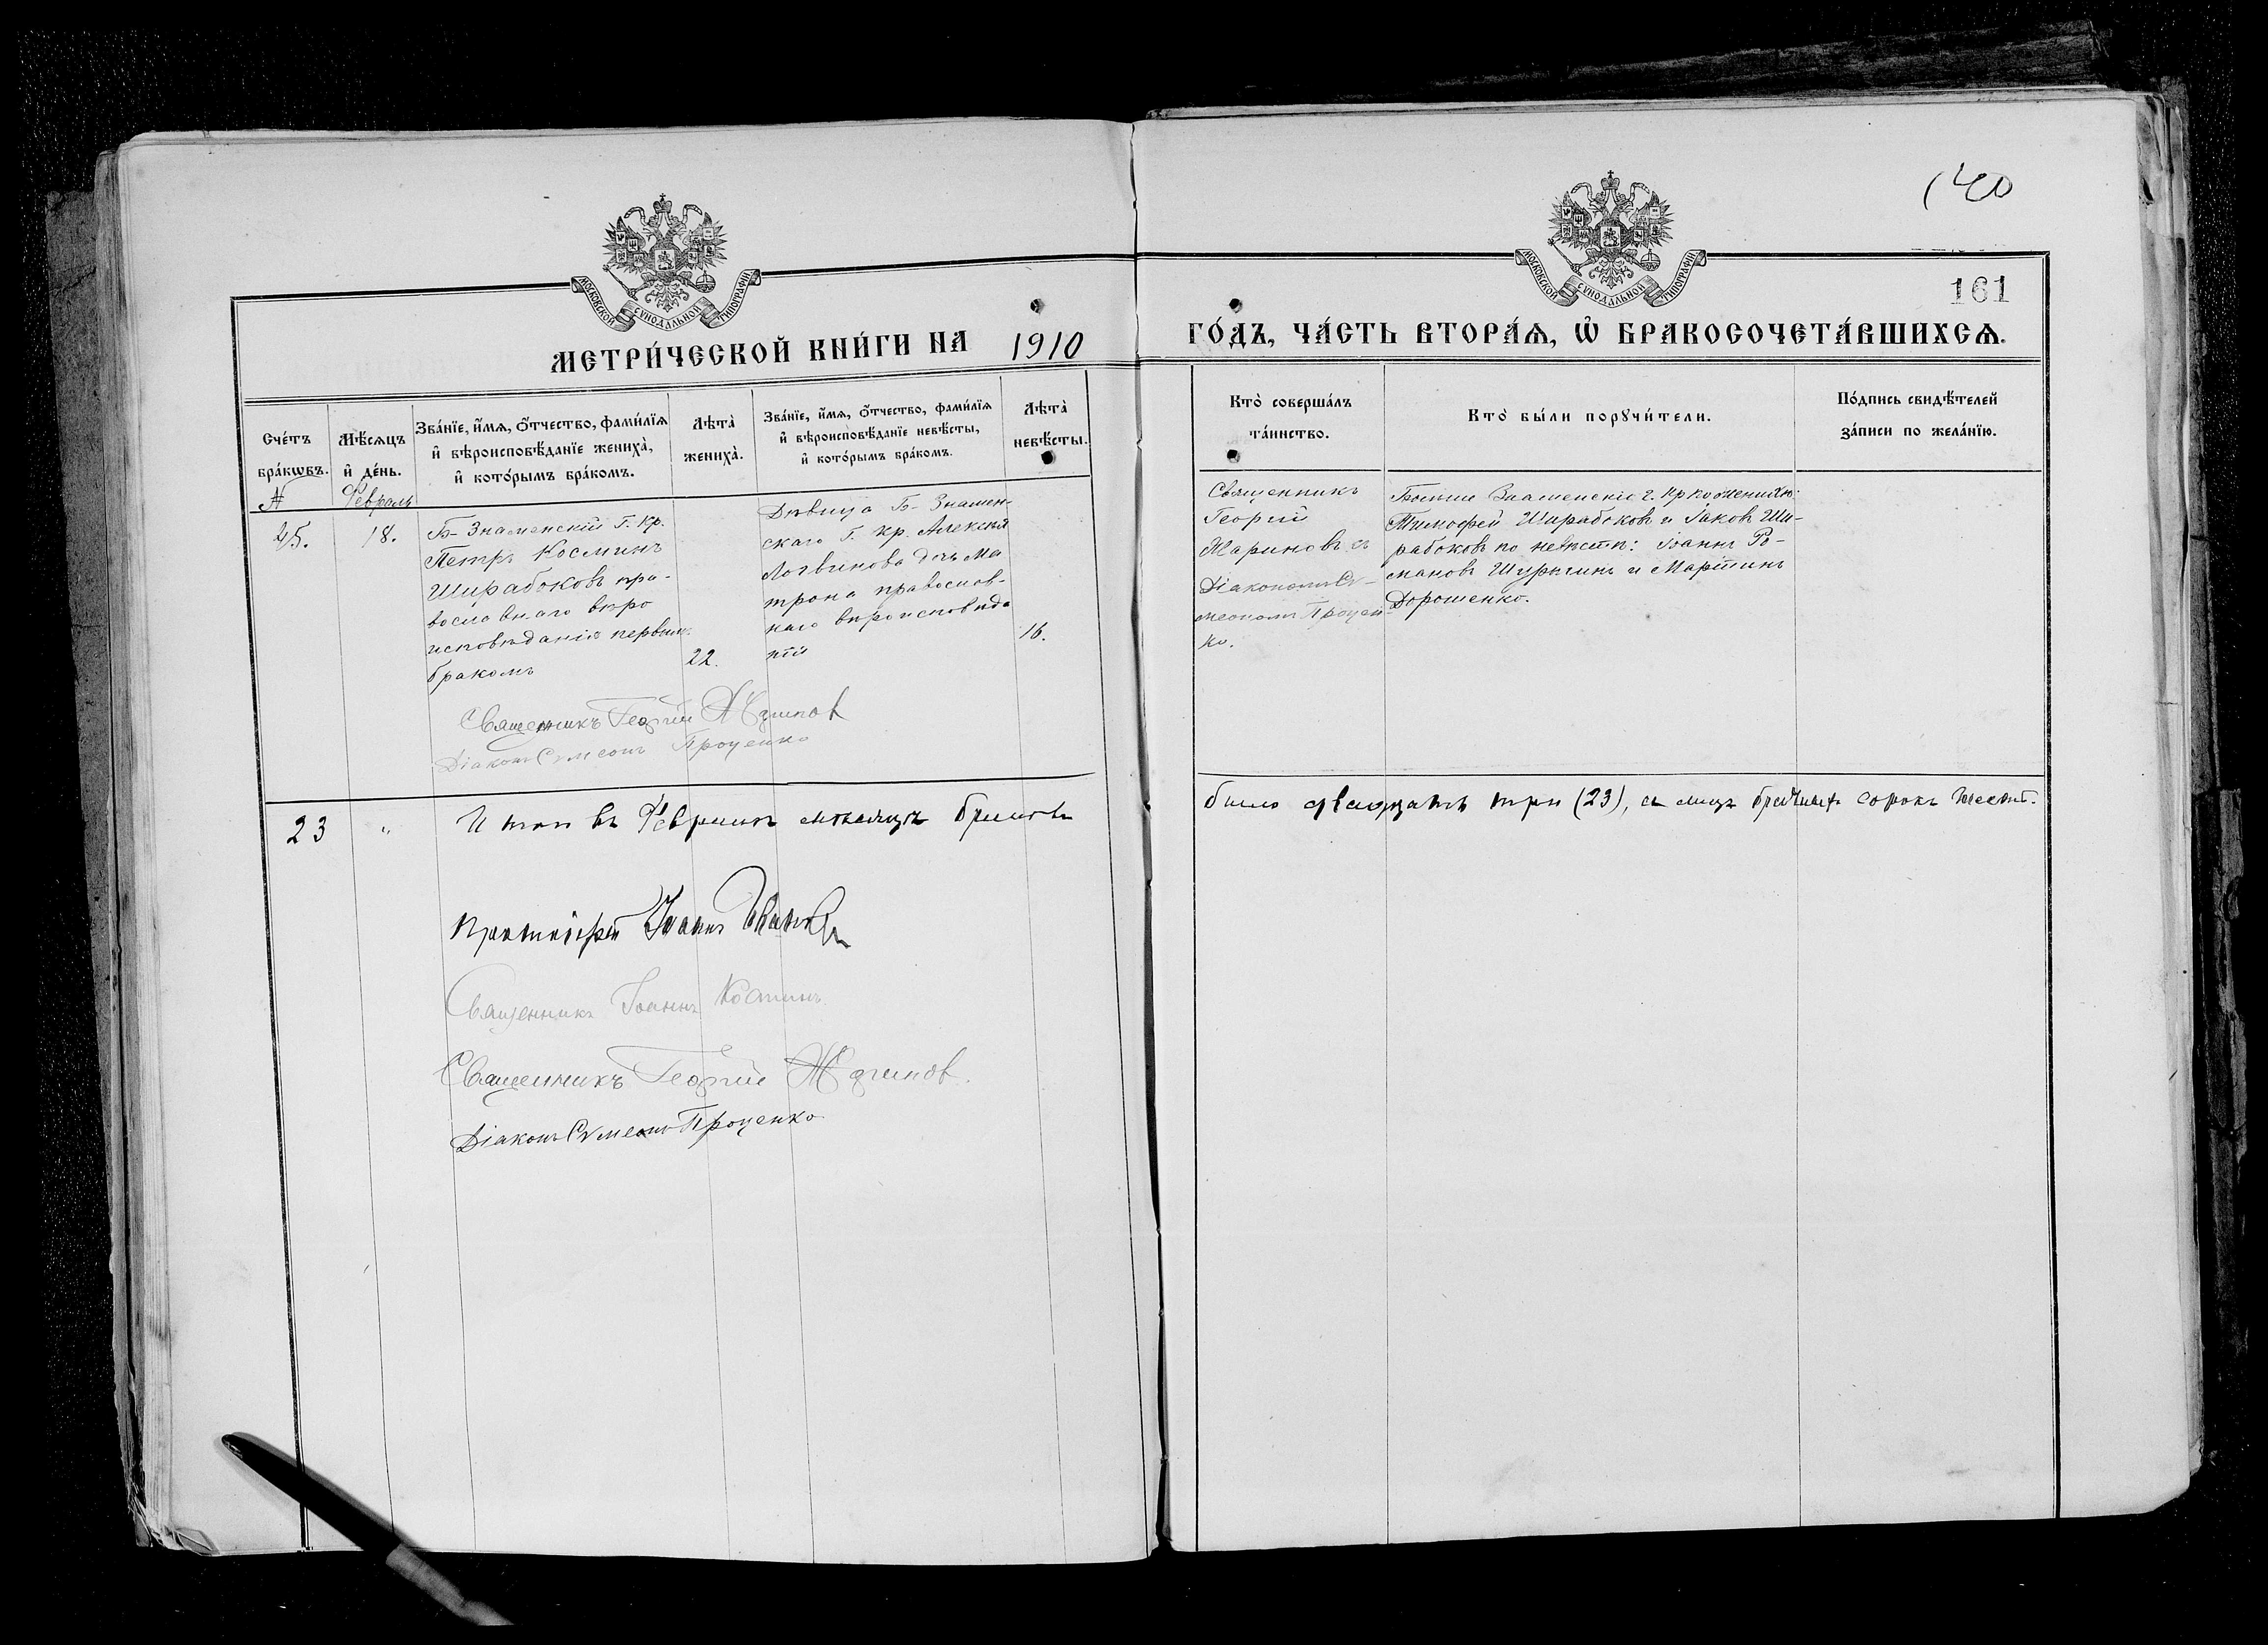 140
161
МОСКОВСКОЙ СѴНОДАЛЬНОЙ ТИПОГРАФІИ
МОСКОВСКОЙ СѴНОДАЛЬНОЙ ТИПОГРАФІИ
МЕТРИ́ЧЕСКОЙ КНИ́ГИ НА 1910
ГО́ДЪ, ЧА́СТЬ ВТОРА́Ѧ, Ѡ҆ БРАКОСОЧЕТА́ВШИХСѦ.
Сче́тъ
бра́кѡвъ.
Мѣ́сѧцъ
и҆ де́нь.
Зва́нїе, и҆́мѧ, ѻ҆́тчество, фами́лїѧ
и҆ вѣроисповѣ́данїе жениха̀,
и҆ кото́рымъ бра́комъ.
Лѣта̀
жениха̀.
Зва́нїе, и҆́мѧ, ѻ҆́тчество, фами́лїѧ
и҆ вѣроисповѣ́данїе невѣ́сты,
и҆ кото́рымъ бра́комъ.
Лѣта̀
невѣ́сты.
Кто̀ соверша́лъ
та́инство.
Кто̀ бы́ли порꙋчи́тели.
По́дпись свидѣ́телей
за́писи по жела́нїю.
Февраль
45.
18.
Б-Знаменскій Г. кр.
Петръ Косминъ
Ширабоковъ пра-
вославнаго вѣро
исповѣданія первым
бракомъ
22.
Дѣвица Б-Знамен-
скаго Г. кр. Алексѣя
Логвинова дчь Ма
трона православ-
наго вѣроисповѣда
нія
16.
Священникъ
Георгій
Жариновъ съ
Діакономъ Сѵ-
меономъ Процен-
ко.
Больше Знаменскіе г. кр по женихѣ:
Тимофей Ширабоковъ и Іаковъ Ши-
рабоковъ по невѣстѣ: Іоаннъ Ро-
мановъ Шурыгинъ и Мартинъ
Дорошенко.
Священникъ Георгій Жаринов
Діаконъ Сѵмеонъ Проценко
23 " Итого въ Февралѣ мѣсяцѣ браковъ
было двадцать три (23), а лицъ брачныхъ сорокъ шесть.
Протоіерей Іоаннъ
Священникъ Іоаннъ
Священникъ Георгій Жаринов.
Діаконъ Сѵмеонъ Проценко